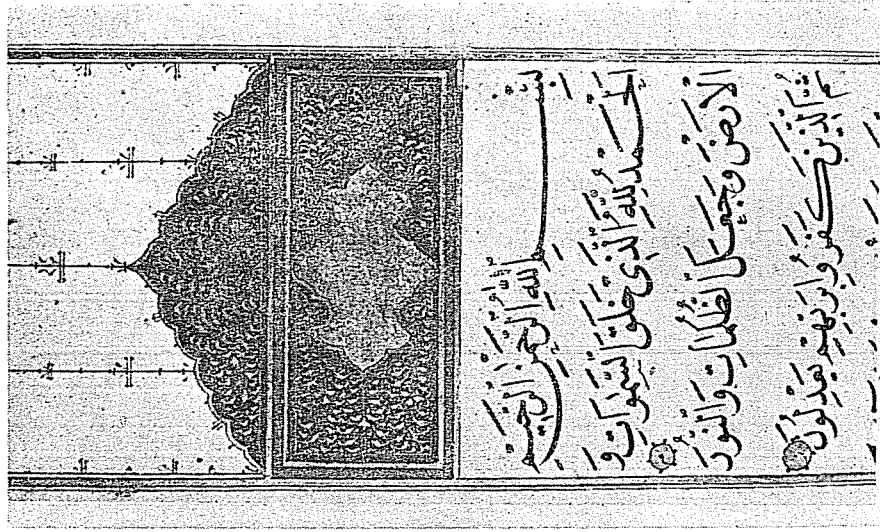 بِسْمِ اللَّهِ الرَّحْمَٰنِ الرَّحِيمِ
الْحَمْدُ لِلَّهِ الَّذِي خَلَقَ السَّمَٰوَاتِ وَ
الْأَرْضَ وَجَعَلَ الظُّلُمَاتِ وَالنُّورَ
ثُمَّ الَّذِينَ كَفَرُوا بِرَبِّهِمْ يَعْدِلُونَ